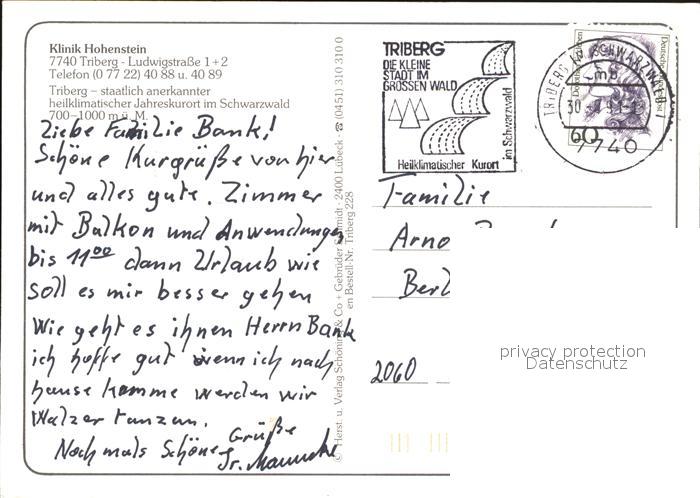 Klinik Hohenstein
7740 Triberg - Ludwigstraße 1+2
Telefon (0 77 22) 40 88 u. 40 89
Triberg – staatlich anerkannter
heilklimatischer Jahreskurort im Schwarzwald
700–1000 m ü. M.
Liebe Familie Bank!
Schöne Kurgrüße von hier
und alles gute. Zimmer
mit Balkon und Anwendungen
bis 11 00 dann Urlaub wie
soll es mir besser gehen
Wie geht es ihnen Herrn Bank
ich hoffe gut wenn ich nach
hause komme werden wir
Walzer tanzen.
Nochmals Schöne Grüße
Fr.
© Herst. u. Verlag Schöning & Co + Gebrüder Schmidt · 2400 Lübeck · ☎ (0451) 310 310 0
en Bestell-Nr. Triberg 228
TRIBERG
DIE KLEINE
STADT IM
GROSSEN WALD
im Schwarzwald
Heilklimatischer Kurort
TRIBERG IM SCHWARZWALD 1
mb
30.-7.9
7740
60
Deutsche Bundespost
Familie
Arno
Berl
2060
privacy protection
Datenschutz